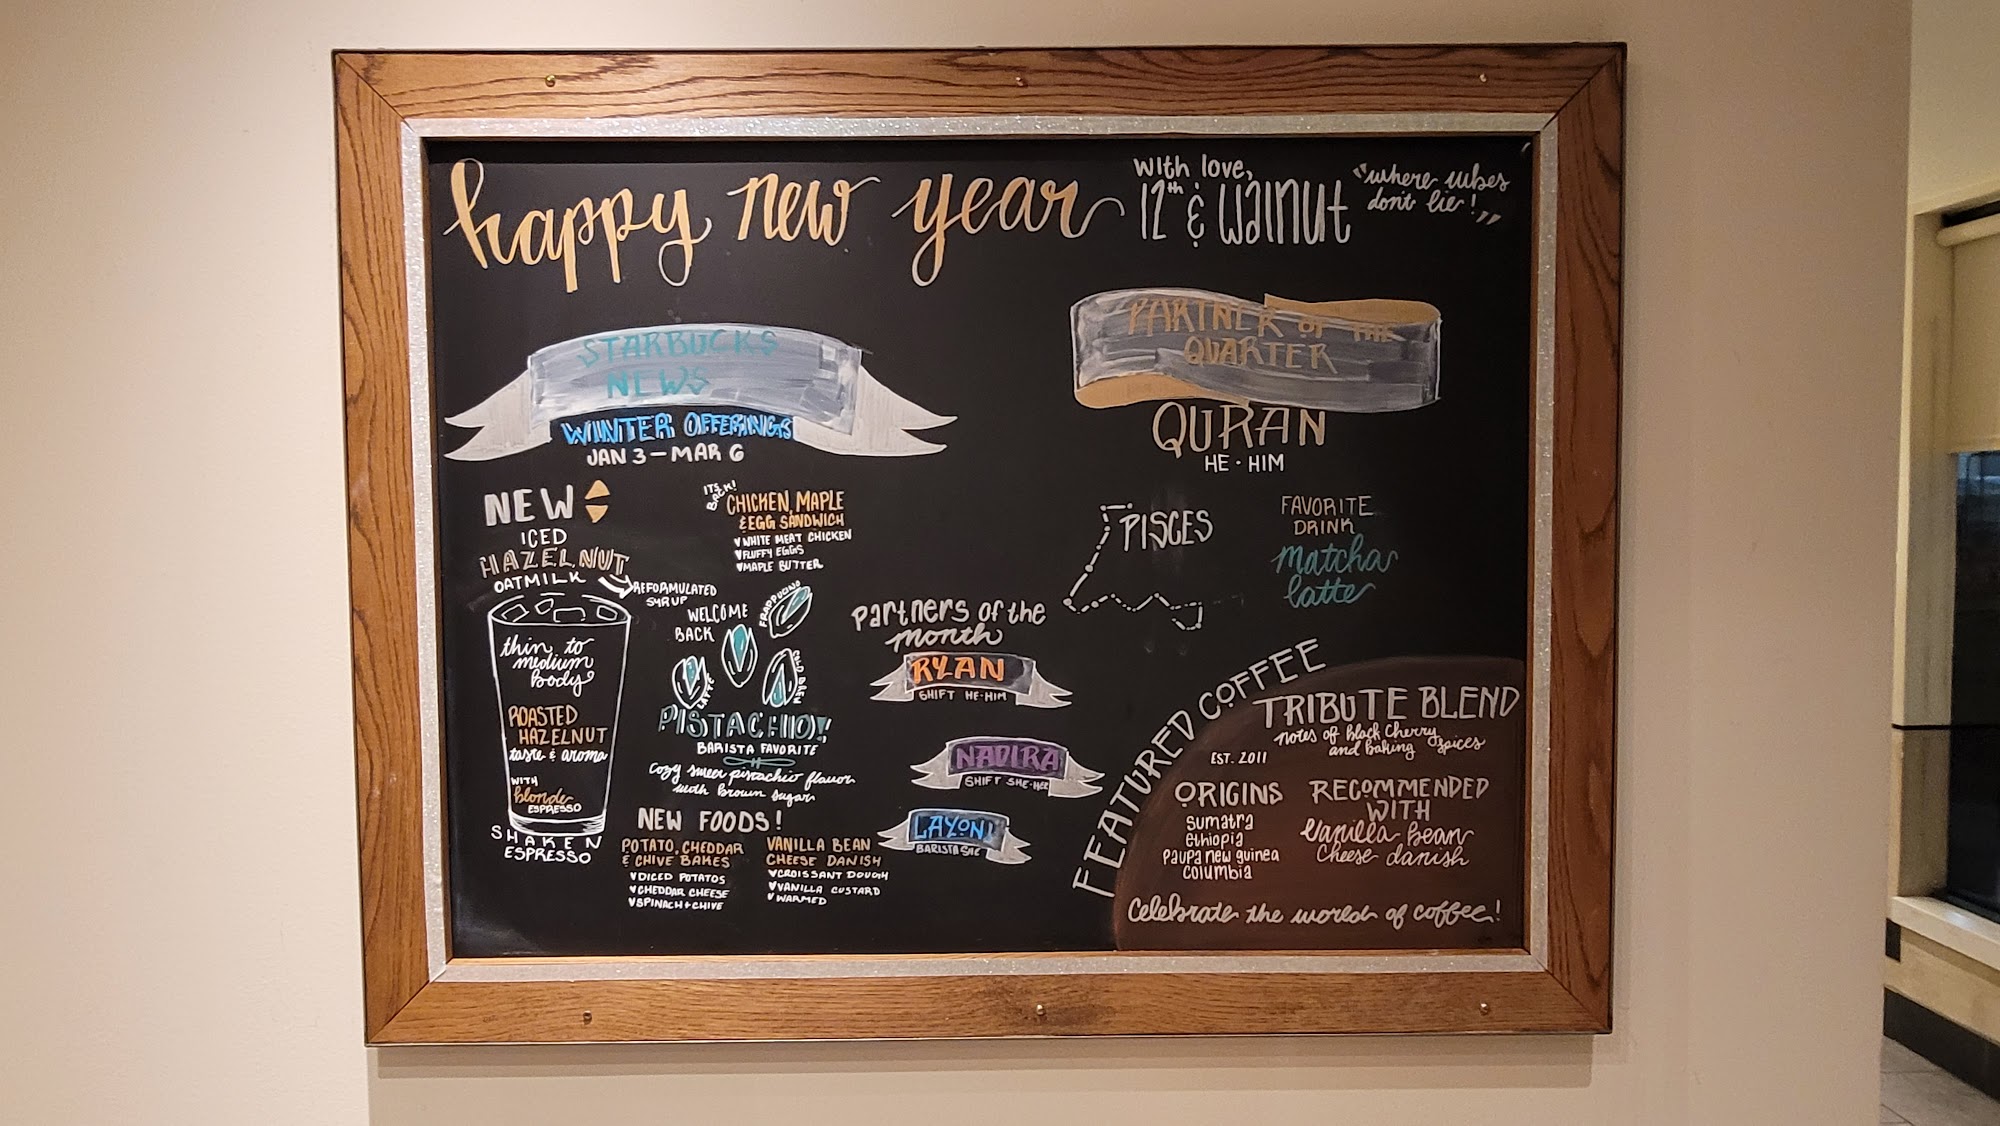 happy new year
with love,
12th & walnut
"where vibes
don't lie!"
STARBUCKS
NEWS
WINTER OFFERINGS
JAN 3 - MAR 6
NEW
ICED
HAZELNUT
OATMILK
REFORMULATED
SYRUP
thin to
medium
body
ROASTED
HAZELNUT
taste & aroma
WITH
blonde
ESPRESSO
SHAKEN
ESPRESSO
ITS
BACK!
CHICKEN, MAPLE
& EGG SANDWICH
WHITE MEAT CHICKEN
FLUFFY EGGS
MAPLE BUTTER
WELCOME
BACK
FRAPPUCCINO
LATTE
COLD BREW
PISTACHIO!
BARISTA FAVORITE
cozy sweet pistachio flavor
with brown sugar
NEW FOODS!
POTATO, CHEDDAR
& CHIVE BAKES
DICED POTATOS
CHEDDAR CHEESE
SPINACH + CHIVE
VANILLA BEAN
CHEESE DANISH
CROISSANT DOUGH
VANILLA CUSTARD
WARMED
Partners of the
month
RYAN
SHIFT HE·HIM
NADIRA
SHIFT SHE·HER
LAYON
BARISTA
PARTNER OF THE
QUARTER
QURAN
HE · HIM
PISCES
FAVORITE
DRINK
matcha
latte
FEATURED COFFEE
TRIBUTE BLEND
notes of black cherry
and baking spices
EST. 2011
ORIGINS
Sumatra
ethiopia
Paupa new guinea
Columbia
RECOMMENDED
WITH
Vanilla bean
Cheese danish
Celebrate the world of coffee!